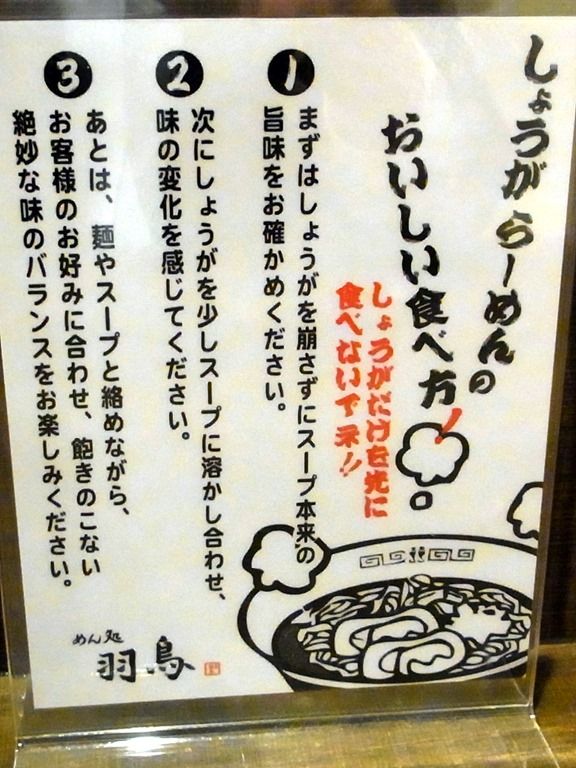 しょうがらーめんの
おいしい食べ方!
しょうがだけを先に
食べないで
!!
1
まずはしょうがを崩さずにスープ本来の
旨味をお確かめください。
2
次にしょうがを少しスープに溶かし合わせ、
味の変化を感じてください。
3
あとは、麺やスープと絡めながら、
お客様のお好みに合わせ、飽きのこない
絶妙な味のバランスをお楽しみください。
めん処
羽鳥